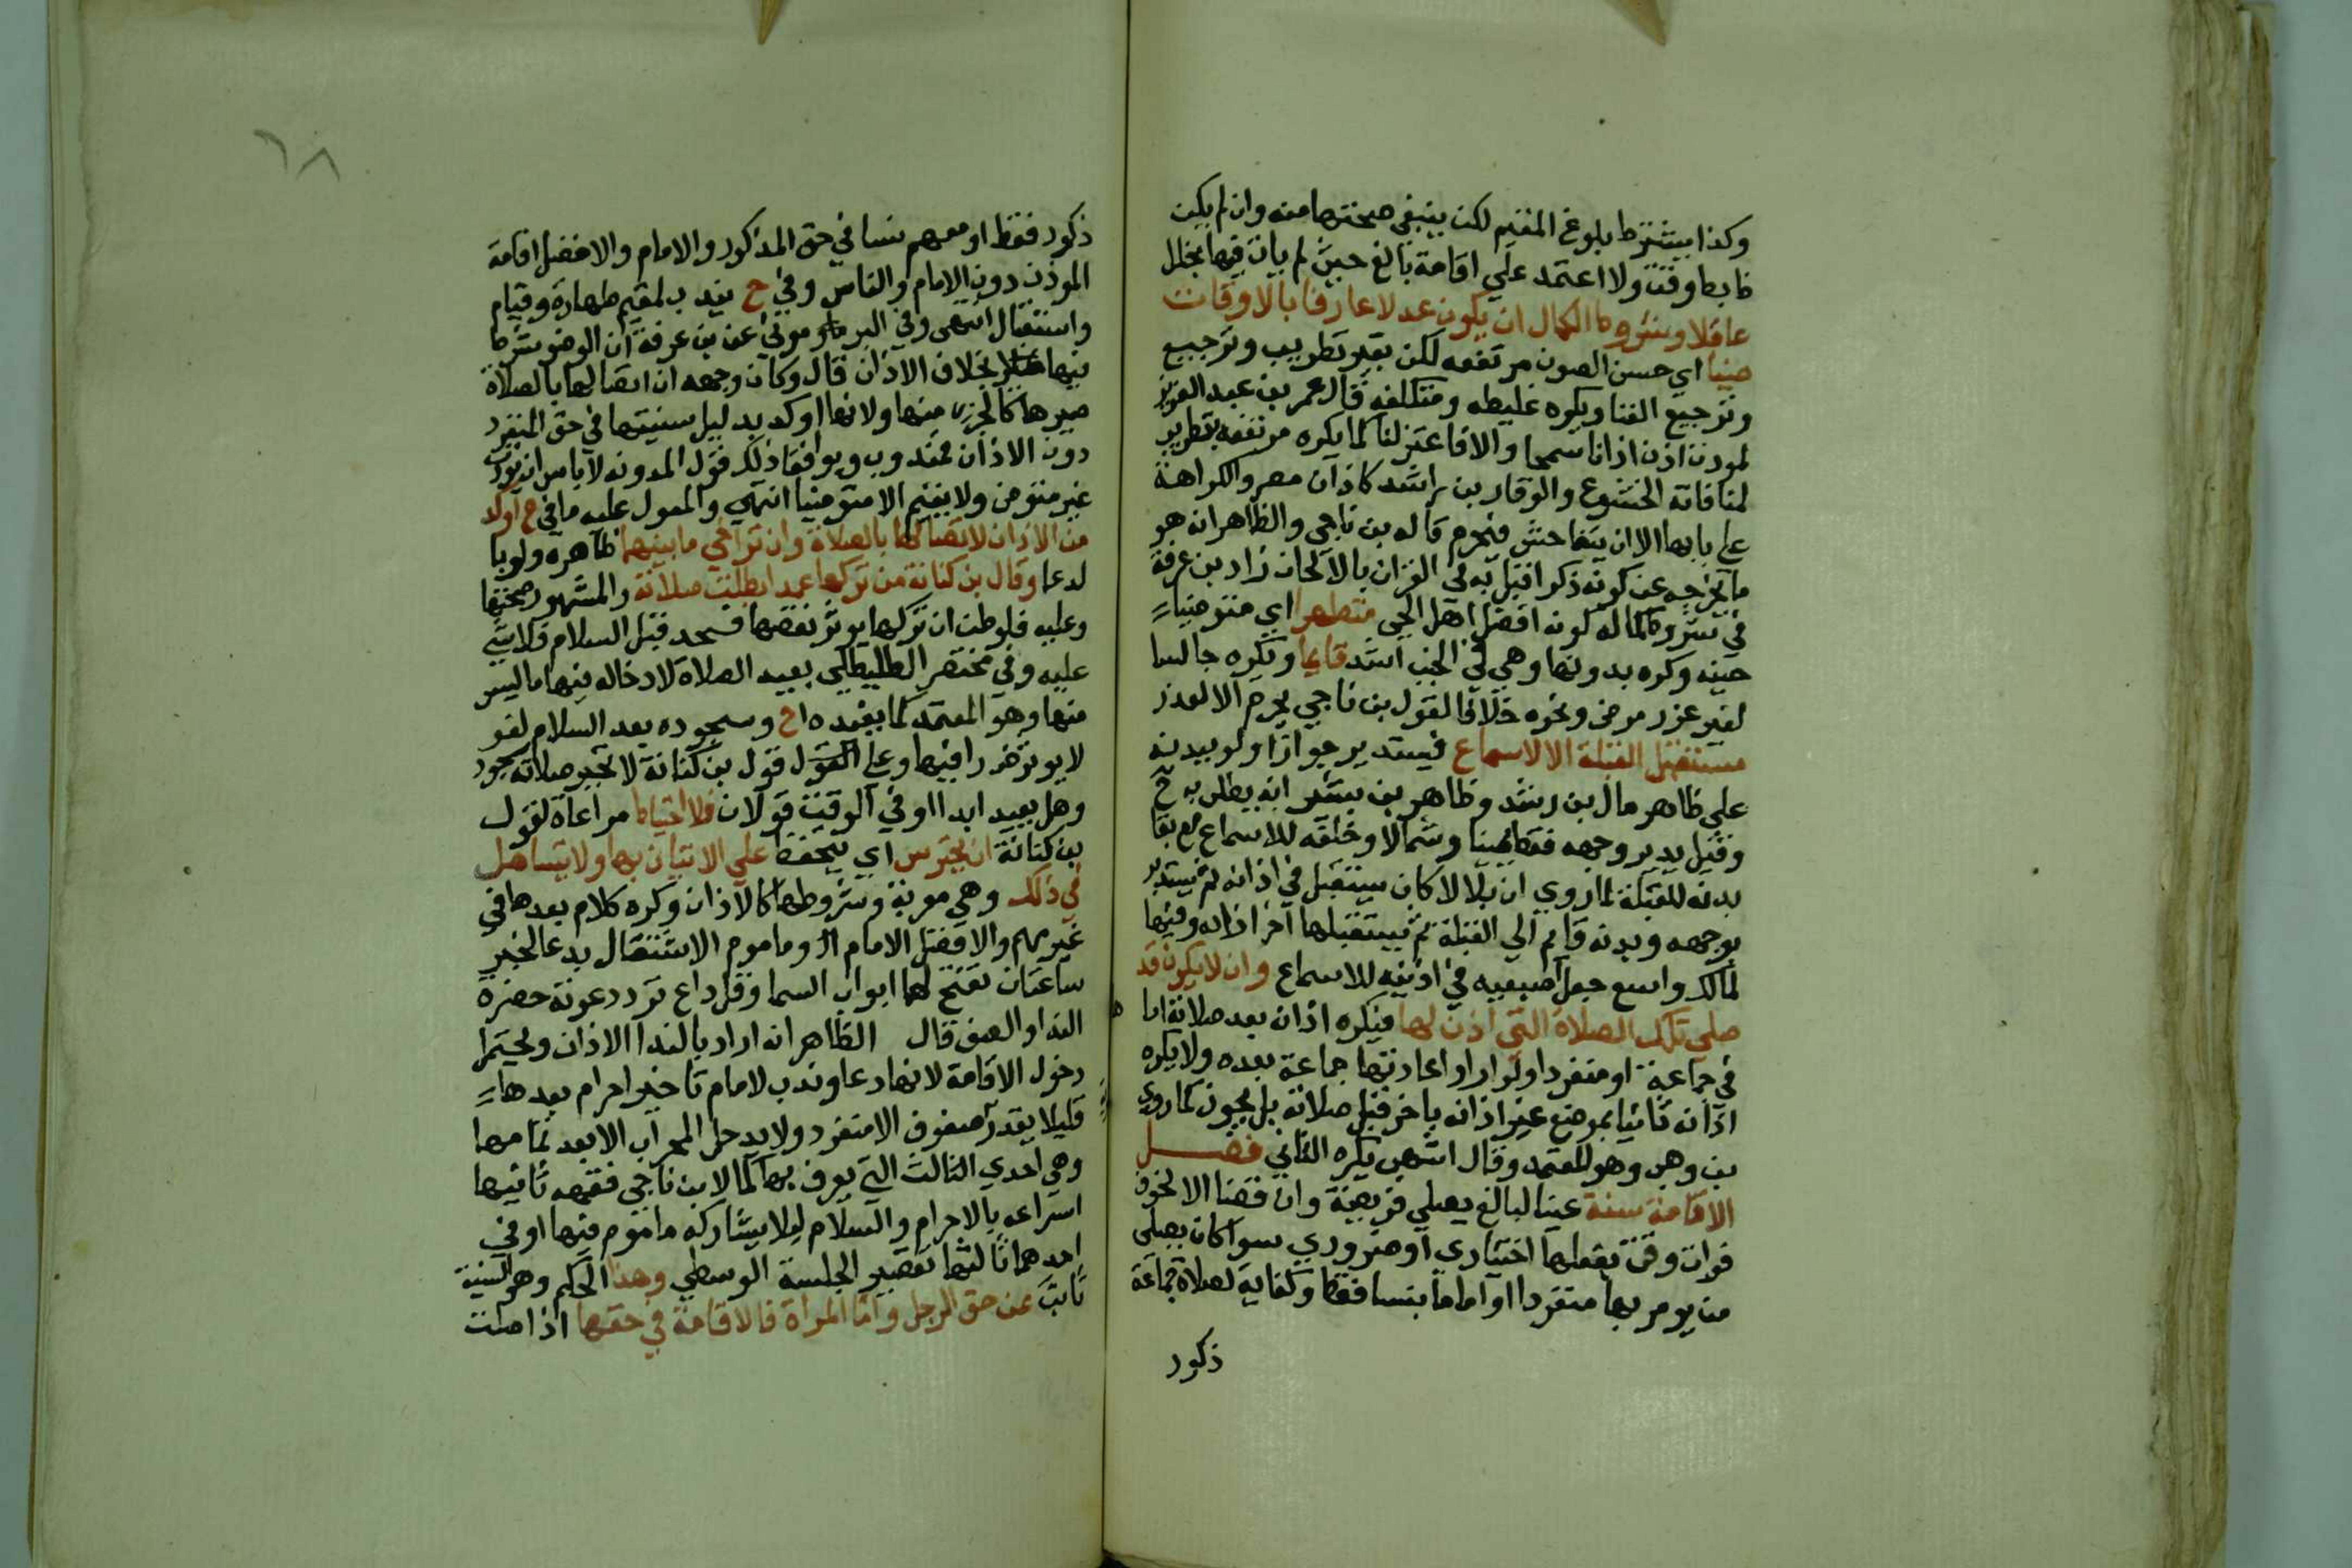 وكذا يشترط بلوغ المقيم لكن ينبغي صحتها منه وان لم يكن
ضابط وقت ولا اعتمد علي اقامة بالغ حيث لم يات فيها بخلل
عاقلا وشروط الكمال ان يكون عدلا عارفا بالاوقات
صيتا اي حسن الصوت مرتفعه لكن بغير تطريب وترجيع
وترجيع الغنا ويكره غليظه ومتكلفه قال عمر بن عبد العزيز
لموذن اذن اذانا سمحا والا فاعتزلنا كما يكره مرتفعه بتطريب
لمنافاته الخشوع والوقار بن راشد كاذان مصر والكراهة
علي بابها الا ان يتفاحش فيحرم قاله بن ناجي والظاهر انه هو
ما يخرجه عن كونه ذكرا قبل به في القران بالالحان زاد بن عرفة
في شروط كماله كونه افضل اهل الحي متطهرا اي متوضيا
حينه وكره بدونها وهي في الجنب اشد قايما ويكره جالسا
لغير عذر مرض ونحوه خلافا لقول بن ناجي يحرم الا لعذر
مستقبل القبلة الا لاسماع فيستدير جوازا ولو ببدنه
علي ظاهر مال بن رشد وظاهر بن بشير انه يطلب به ح
وقيل يدير وجهه فقط يمينا وشمالا وخلفه للاسماع مع بقا
بدنه للقبلة لما روي ان بلالا كان يستقبل في اذانه ثم يستدير
بوجهه وبدنه قايم الي القبلة ثم يستقبلها اخر اذانه وفيها
لمالك واسع جعل اصبعيه في اذنيه للاسماع وان لا يكون قد
صلي تلك الصلاة التي اذن لها فيكره اذانه بعد صلاته اما
في جماعة او منفردا ولو اراد اعادتها جماعة بعده ولا يكره
اذانه ثانيا بموضع غير اذانه باخر قبل صلاته بل يجوز كما روي
بن وهب وهو المعتمد وقال اشهب يكره الثاني فصل
الاقامة سنة عينا لبالغ يصلي فريضة وان قضا الا لخوف
فوات وقت بفعلها اختياري او ضروري سوا كان يصلي
من يومر بها منفردا او اماما بنسا فقط وكفاية لصلاة جماعة
ذكور
٦٨
ذكور فقط او معهم نسا في حق المذكور والامام والافضل اقامة
الموذن دون الامام والناس وفي ح يندب لمقيم طهارة وقيام
واستقبال انتهى وفي البرموني عن بن عرفة ان الوضو شرط
فيها بخلاف الاذان قال وكان وجهه ان اتصالها بالصلاة
صيرها كالجزء منها ولانها اوكد بدليل سنيتها في حق المنفرد
دون الاذان فمندوب ويوافقه ذلك قول المدونه لا باس ان يوذن
غير متوض ولا يقيم الا متوضيا انتهي والمعول عليه ما في ح اوكد
من الاذان لاتصالها بالصلاة وان تراخي ما بينهما ظاهره ولو با
لدعا وقال بن كنانة من تركها عمدا بطلت صلاته والمشهور صحتها
وعليه فلو ظن ان تركها يوثر نقصها فسجد قبل السلام فلا شي
عليه وفي مختصر الطليطلي يعيد الصلاة لادخاله فيها ما ليس
منها وهو المعتمد كما يفيده ح وسجوده بعد السلام لغو
لا يوثر خللا فيها وعلي القول قول بن كنانة لا تجبر صلاته سجود
وهل يعيد ابدا او في الوقت قولان فلا احتياط مراعاة لقول
بن كنانة ان يحترس اي يتحفظ علي الاتيان بها ولا يتساهل
في ذلك وهي معربة وشروطها كالاذان وكره كلام بعدها في
غير مهم والافضل الامام او وماموم الاشتغال بدعا لخبر
ساعتان تفتح لهما ابواب السما وقل داع ترد دعوته حضرة
الندا والصف قال الظاهر انه اراد بالندا الاذان ويحتمل
دخول الاقامة لانها دعا وندب لامام تاخير احرام بعدها
قليلا بقدر صفوف الا منفرد ولا يدخل المحراب الا بعد تمامها
وهي احدي الثالث التي يعرف بها كمال بن ناجي فقهه ثانيها
اسراعه بالاحرام والسلام ليلا يشاركه ماموم فيها او في
احدهما ثالثها تقصير الجلسة الوسطي وهذا الحكم وهو السنية
ثابت عن حق الرجل واما المراة فالاقامة في حقها اذا صلت